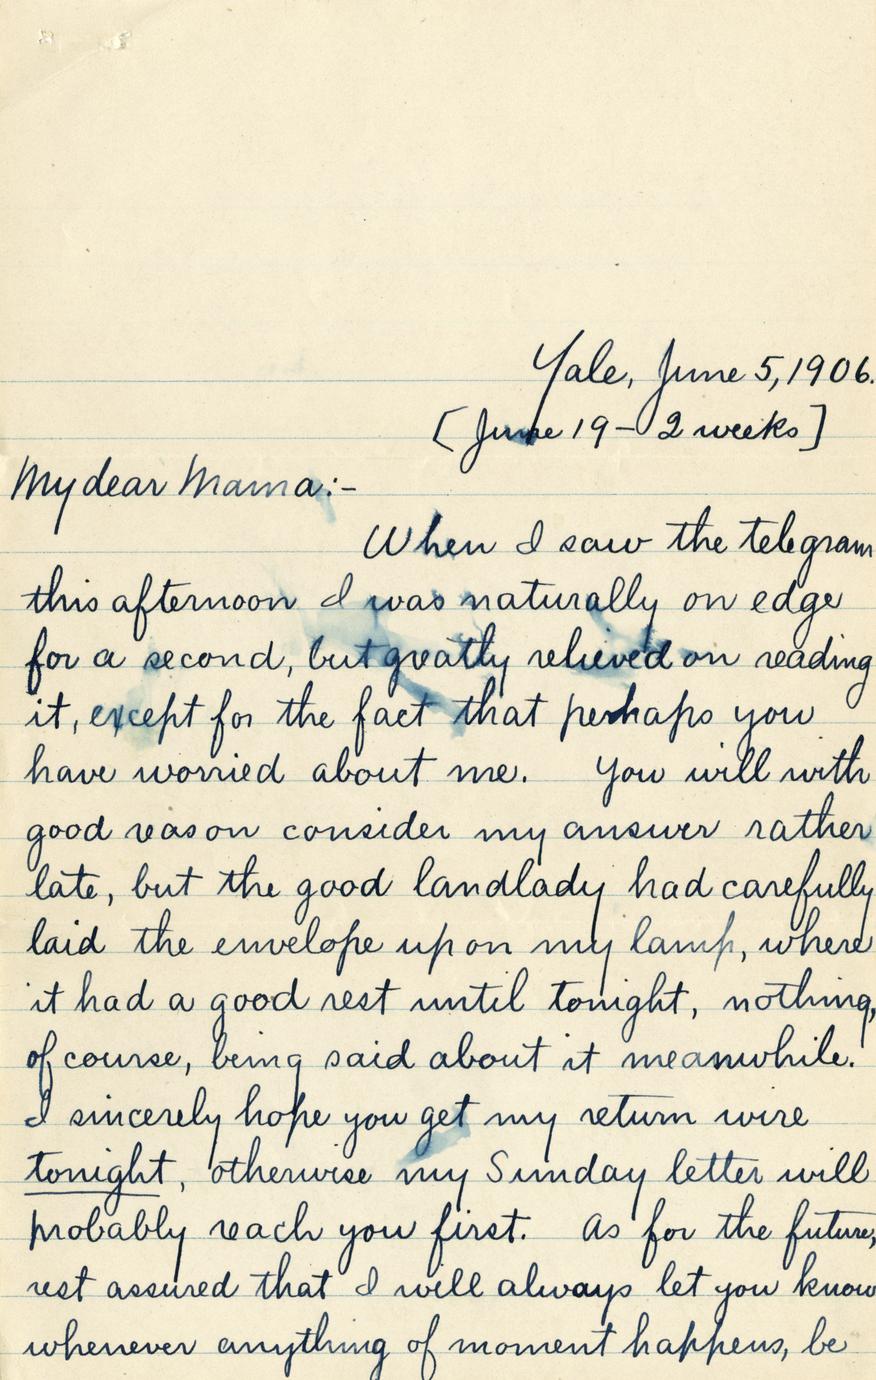 Yale, June 5, 1906.
[June 19 - 2 weeks]
My dear Mama:-
When I saw the telegram
this afternoon I was naturally on edge
for a second, but greatly relieved on reading
it, except for the fact that perhaps you
have worried about me. You will with
good reason consider my answer rather
late, but the good landlady had carefully
laid the envelope upon my lamp, where
it had a good rest until tonight, nothing,
of course, being said about it meanwhile.
I sincerely hope you get my return wire
tonight, otherwise my Sunday letter will
probably reach you first. As for the future,
rest assured that I will always let you know
whenever anything of moment happens, be